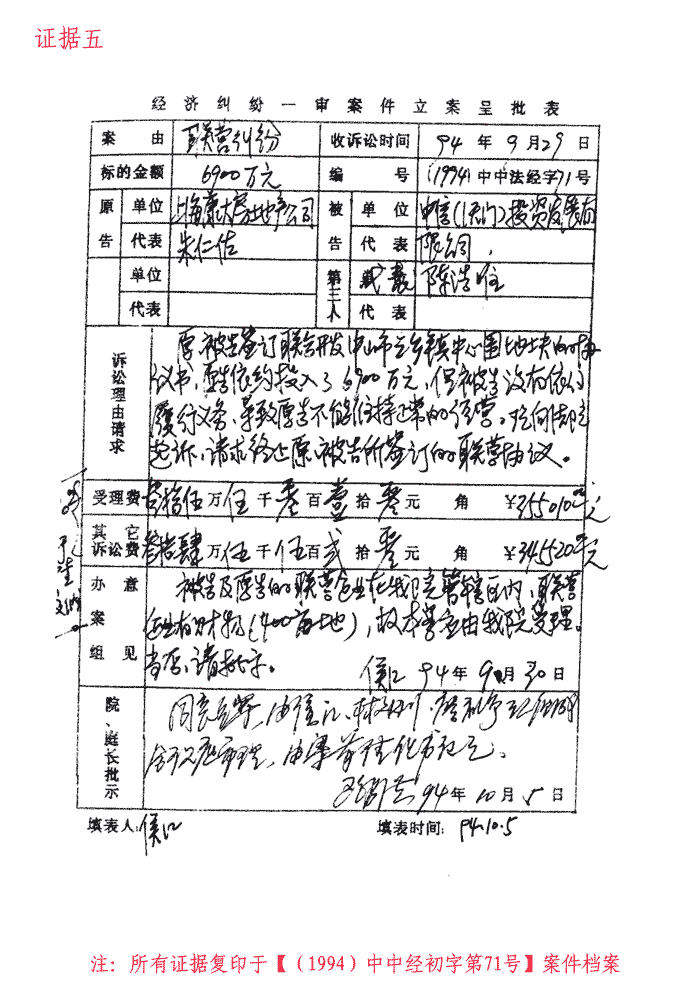 证据五
经济纠纷一审案件立案呈批表
案由 联营纠纷 收诉讼时间 94年9月29日
标的金额 6900万元 编号 (1994)中中法经字71号
原告 单位 上海康大房地产公司 被告 单位 中信(澳门)投资发展有
代表 朱仁佐 代表 限公司
单位 第三人 代表 陈浩
代表 代表
诉讼理由请求 原、被告签订联合开发中山市三乡镇中心围地块的协
议书,原告依约投入了6900万元,但被告没有依约
履行义务,导致原告不能维持正常的经营。
起诉,请求终止原、被告所签订的联营协议。
受理费 叁拾伍万伍千零百壹拾零元 角 ¥355010元
其它诉讼费 叁拾肆万伍千伍百贰拾零元 角 ¥345520元
办案组意见 被告及原告的联营企业在我院管辖区内,联营
企业有财物(400亩土地),故本案应由我院受理。
当否,请批示。
侯江 94年9月30日
院、庭长批示 同意立案,由侯江、
94年10月5日
填表人:侯江 填表时间:94.10.5
注:所有证据复印于【(1994)中中经初字第71号】案件档案